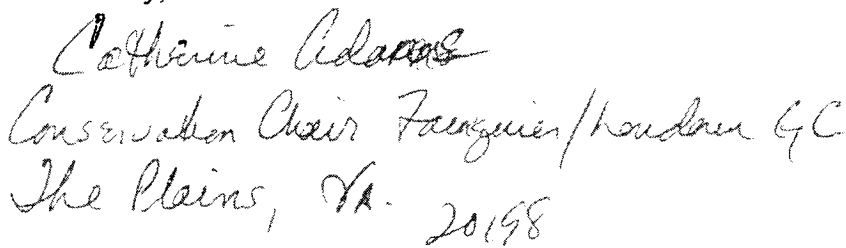 Catherine Adams
Conservation Chair Fauquier/Loudoun GC
The Plains, VA. 20198